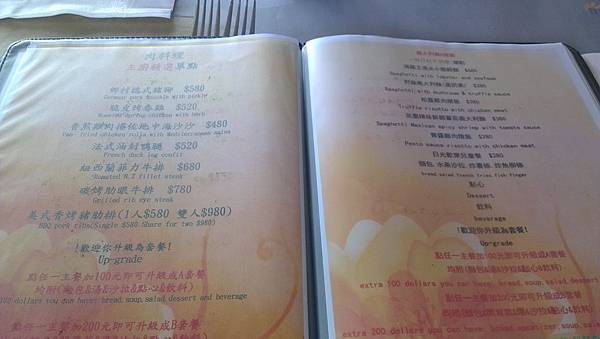 肉料理
主廚精選單點
鄉村德式豬腳 $580
German pork knuckle with pickle
脆皮烤春雞 $520
Roasted spring chicken with herb
香煎雞肉捲佐地中海沙沙 $480
Pan-fried chicken rolls with Mediterranean salsa
法式油封鴨腿 $520
French duck leg confit
紐西蘭菲力牛排 $680
Roasted N.Z fillet steak
碳烤肋眼牛排 $780
Grilled rib eye steak
美式香烤豬肋排(1人$580 雙人$980)
BBQ pork ribs(Single $580 Share for two $980)
!歡迎你升級為套餐!
Up-grade
點任一主餐加100元即可升級成A套餐
均附(麵包&湯&沙拉&點心&飲料)
100 dollars you can have: bread soup salad dessert and beverage
點任一主餐加200元即可升級成B套餐
單點
$380
Spaghetti with seafood
Spaghetti with mushroom & truffle sauce
$380
Truffle risotto with chicken meat
$380
Spaghetti Mexican spicy shrimp with tomato sauce
$380
Pesto sauce risotto with chicken meat
$280
bread salad french fries fish finger
點心
Dessert
飲料
beverage
!歡迎你升級為套餐!
Up-grade
點任一主餐加100元即可升級成A套餐
均附(麵包&湯&沙拉&點心&飲料)
extra 100 dollars you can have: bread, soup, salad, dessert
點任一主餐加200元即可升級成B套餐
extra 200 dollars you can have: bread, appetizer, soup, salad